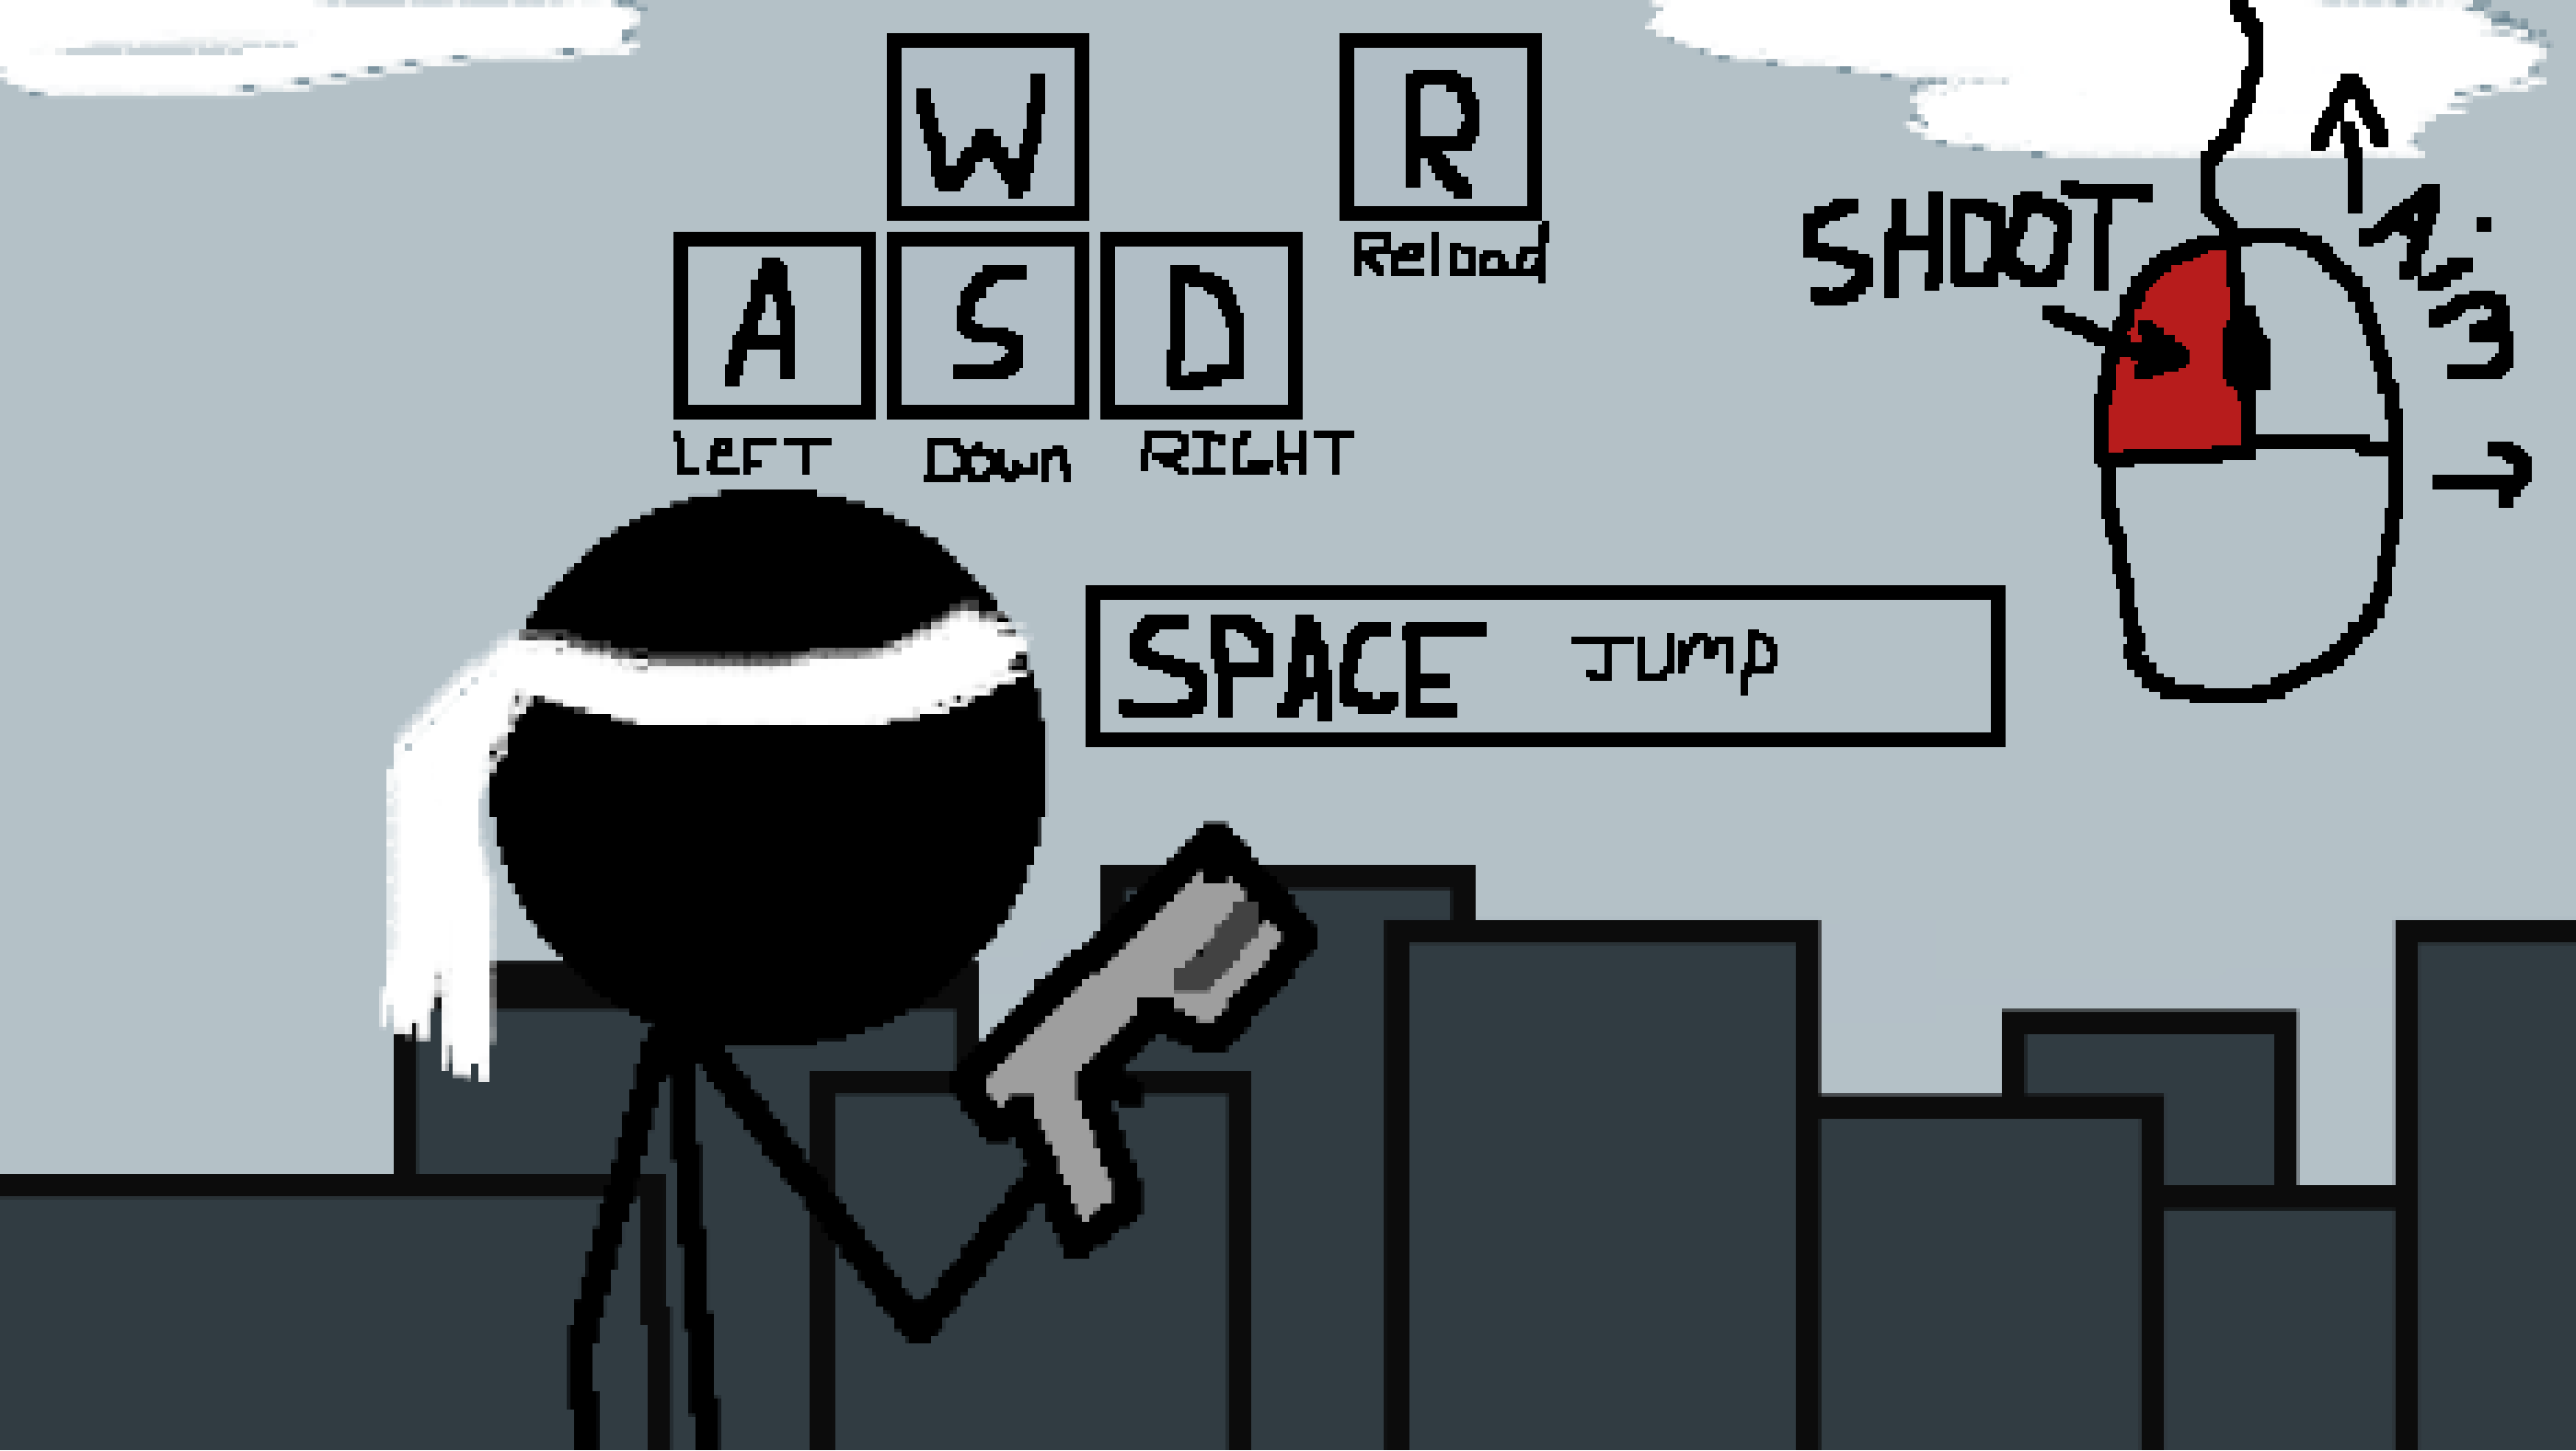 W
R
Reload
A S D
LEFT DOWN RIGHT
SHOOT
Aim
SPACE JUMP